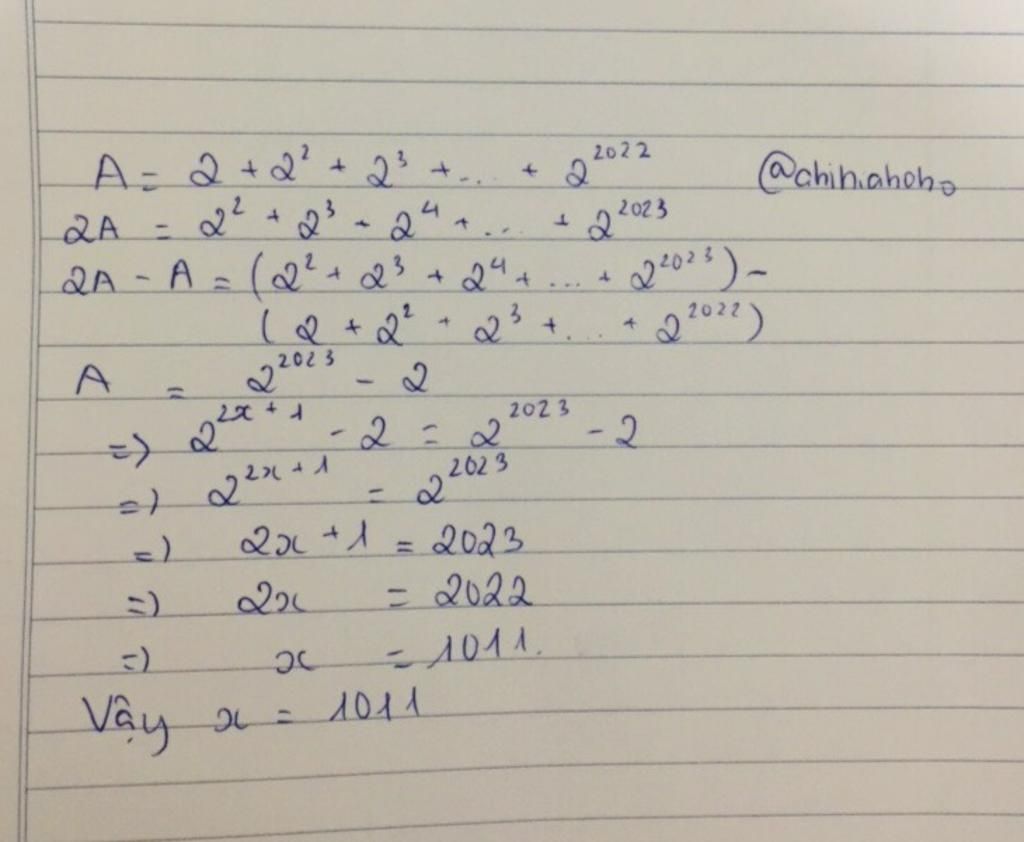 A = 2 + 2² + 2³ + ... + 2²⁰²² @chihiahoho
2A = 2² + 2³ + 2⁴ + ... + 2²⁰²³
2A - A = (2² + 2³ + 2⁴ + ... + 2²⁰²³) -
(2 + 2² + 2³ + ... + 2²⁰²²)
A = 2²⁰²³ - 2
=) 2^{2x + 1} - 2 = 2²⁰²³ - 2
=) 2^{2x + 1} = 2²⁰²³
=) 2x + 1 = 2023
=) 2x = 2022
=) x = 1011.
Vậy x = 1011